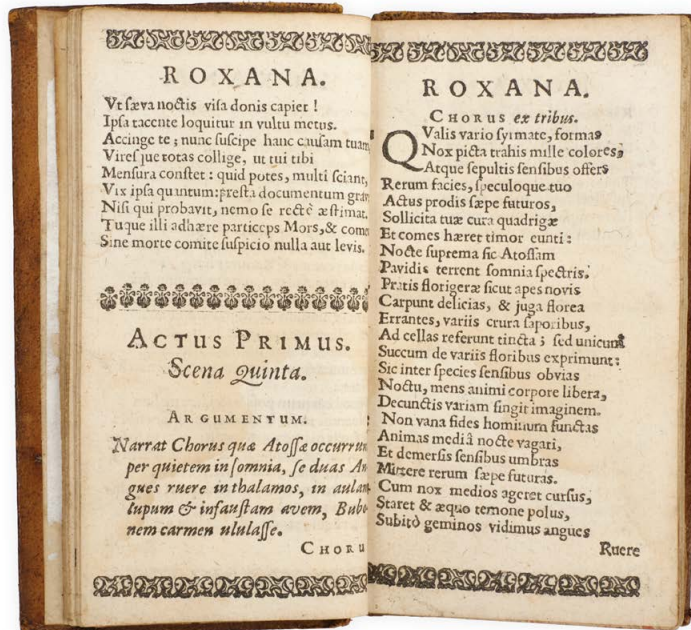 ROXANA.
Vt sæva noctis visa donis capiet !
Ipsa tacente loquitur in vultu metus.
Accinge te ; nunc suscipe hanc causam tuam
Viresque totas collige, ut tui tibi
Mensura constet : quid potes, multi sciant,
Vix ipsa quantum: præsta documentum
Nisi qui probavit, nemo se rectè æstimat.
Tuque illi adhære particeps Mors, & come
Sine morte comite suspicio nulla aut levis.
ACTUS PRIMUS.
Scena Quinta.
ARGUMENTUM.
Narrat Chorus quæ Atossæ occurrun
per quietem insomnia, se duas An
gues ruere in thalamos, in aulam
lupum & infaustam avem, Bubo-
nem carmen ululasse.
CHORU
ROXANA.
CHORUS ex tribus.
QValis vario syrmate, formas
Nox picta trahis mille colores,
Atque sepultis sensibus offers
Rerum facies, speculoque tuo
Actus prodis sæpe futuros,
Sollicita tuæ cura quadrigæ
Et comes hæret timor eunti :
Nocte suprema sic Atossam
Pavidis terrent somnia spectris.
Pratis florigeræ sicut apes novis
Carpunt delicias, & juga florea
Errantes, variis crura saporibus,
Ad cellas referunt tincta ; sed unicum
Succum de variis floribus exprimunt:
Sic inter species sensibus obvias
Noctu, mens animi corpore libera,
Decunctis variam fingit imaginem.
Non vana fides hominum functas
Animas mediâ nocte vagari,
Et demersis sensibus umbras
Mittere rerum sæpe futuras.
Cum nox medios ageret cursus,
Staret & æquo temone polus,
Subitò geminos vidimus angues
Ruere